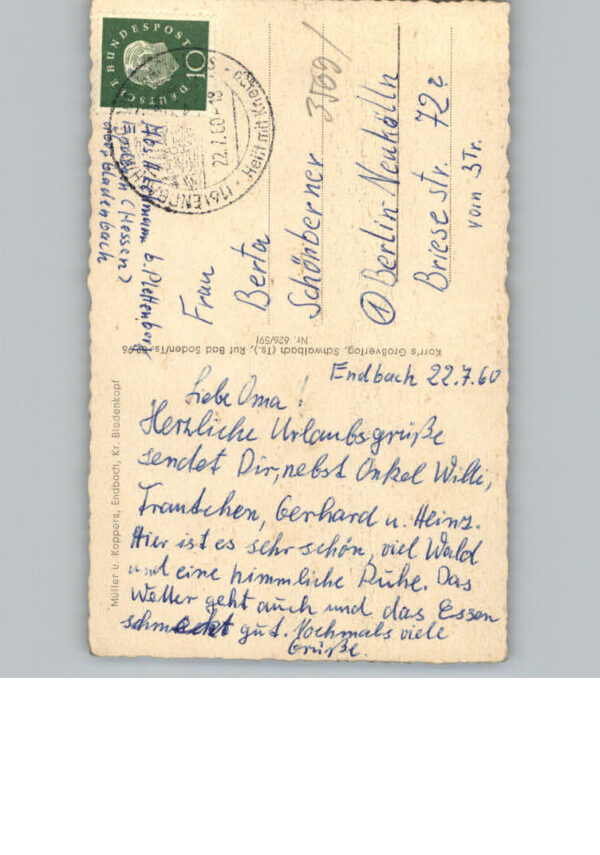 DEUTSCHE BUNDESPOST
10
22.7.60-18
Heilt mit Kneipp
(16) ENDBACH
Abs. b. Plettenberg
Endbach (Hessen)
über Bladenbach
3509/
Frau
Berta
Schönberner
Berlin-Neukölln
Briesestr. 72
vorn 3Tr.
Korr's Großverlag, Schwalbach (Ts.), Ruf Bad Soden/Ts.
Nr. 626/591
Müller u. Kappers, Endbach, Kr. Biedenkopf
Endbach 22.7.60
Liebe Oma!
Herzliche Urlaubsgrüße
sendet Dir, nebst Onkel Willi,
Trautchen, Gerhard u. Heinz.
Hier ist es sehr schön, viel Wald
und eine himmliche Ruhe. Das
Wetter geht auch und das Essen
schmeckt gut. Nochmals viele
Grüße.